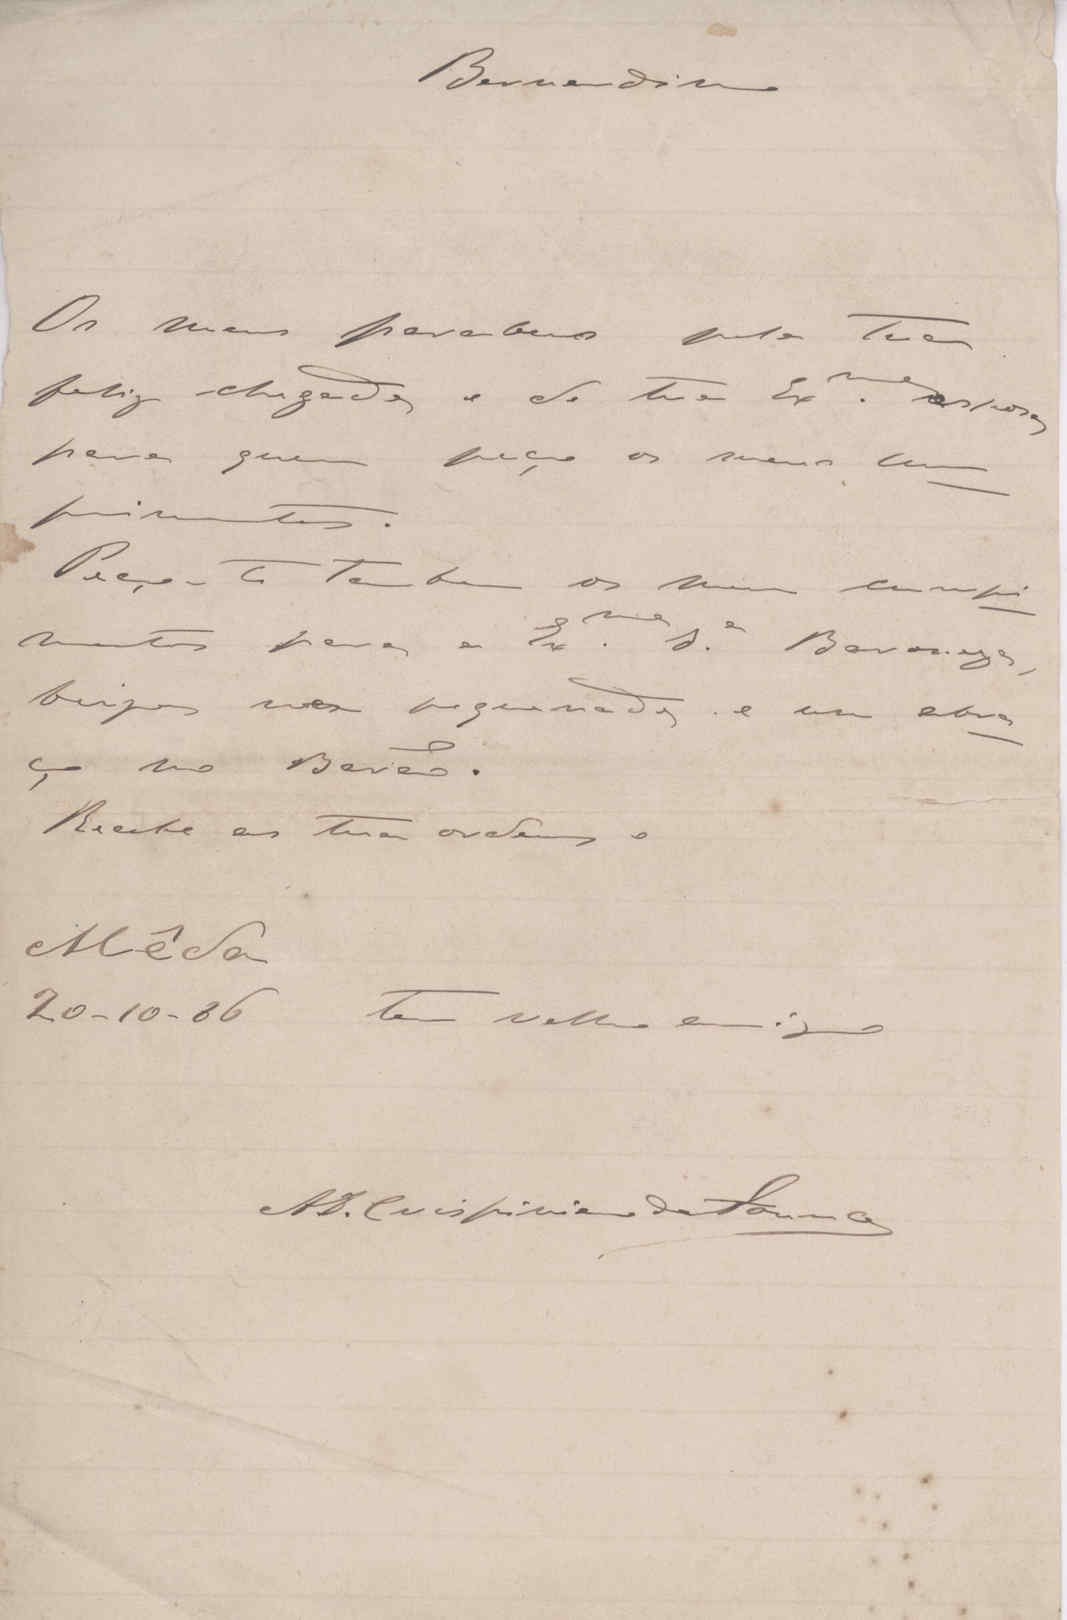 Bernardino
Os meus parabens pela tua
feliz chegada e de tua Ex.ma esposa
para quem peço os meus cum
primentos.
Peço-te tambem os meus cumpri
mentos para a Ex.ma S.a Baroneza,
beijos na pequenada e um abra
ço no Barão.
Recebe as tuas ordens o
Mêda
20-10-86 teu velho amigo
Crispiniano da Fonseca